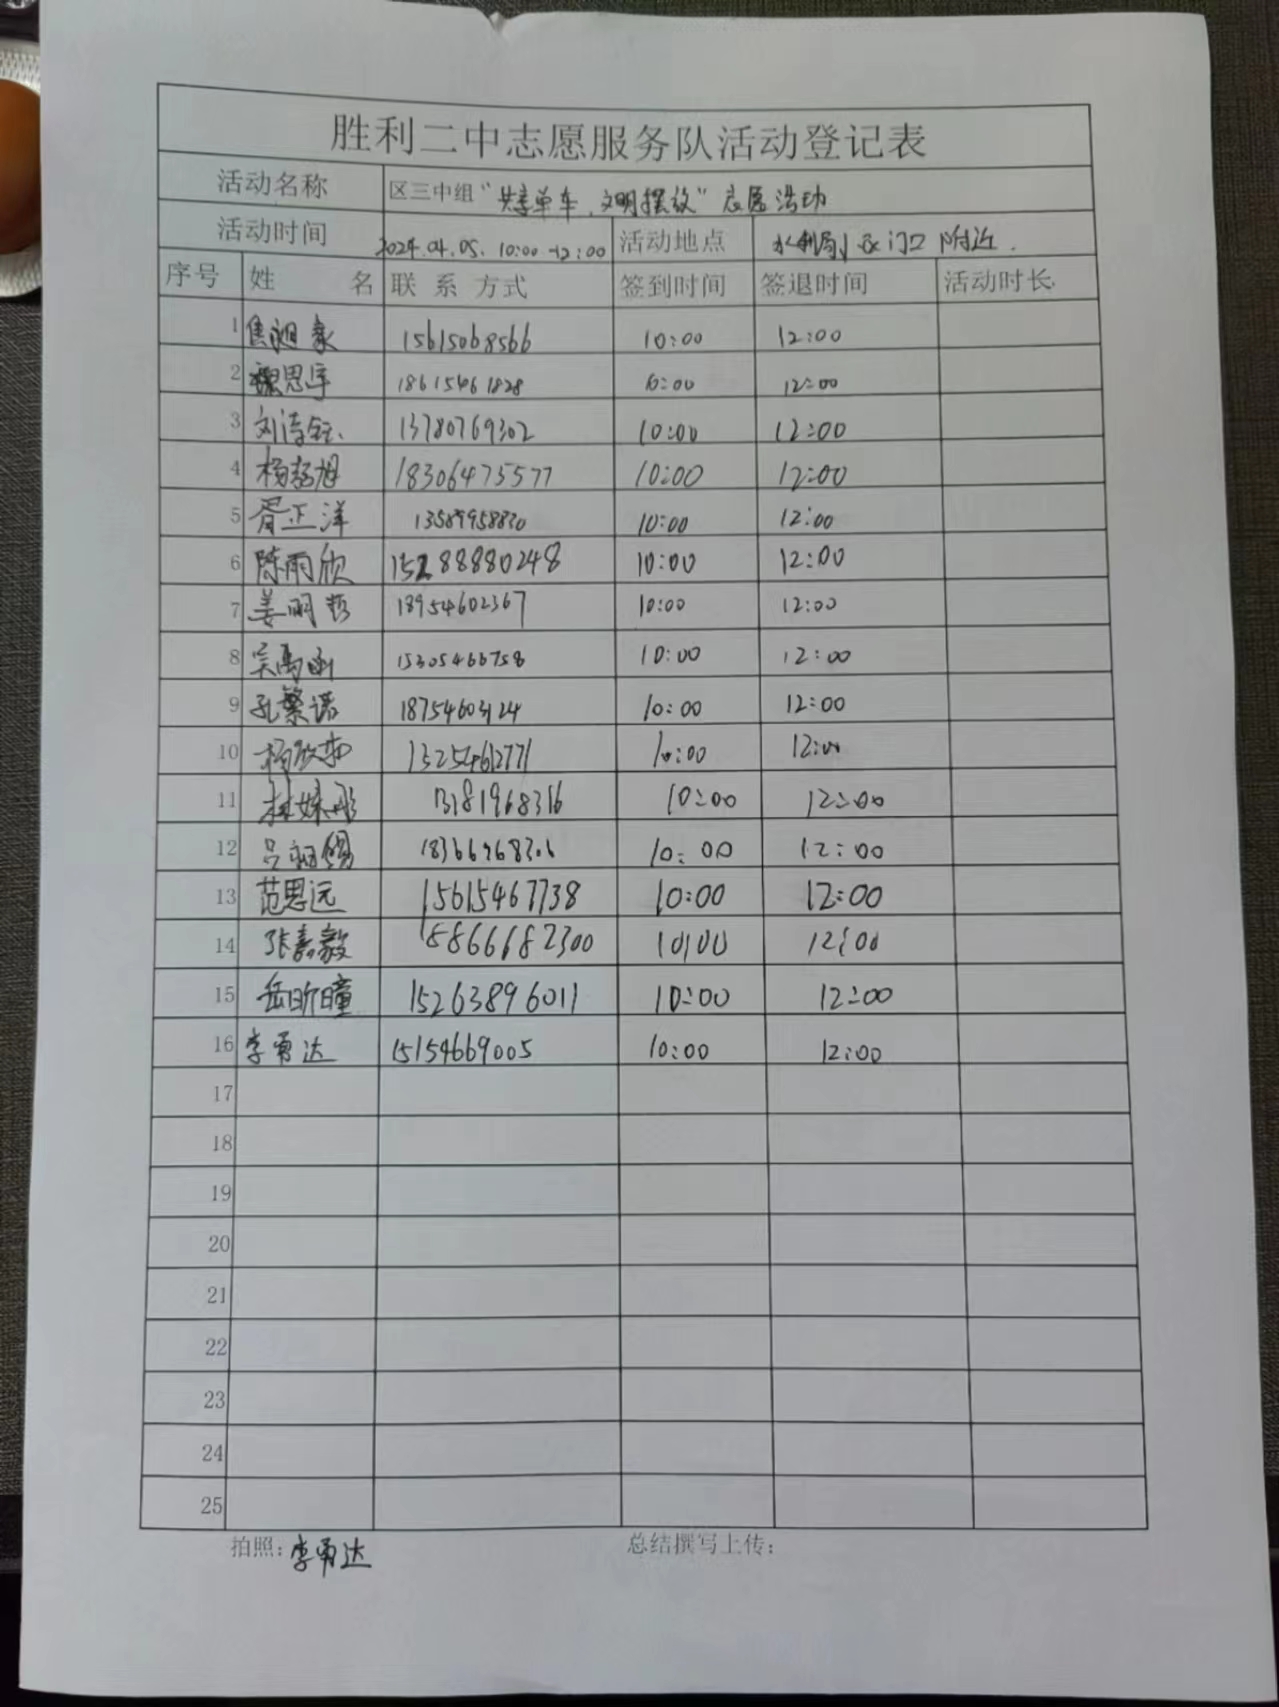 胜利二中志愿服务队活动登记表
活动名称 区三中组“共享单车，文明摆放”志愿活动
活动时间 2024.04.05. 10:00-12:00 活动地点 水利局小区门口附近.
序号 姓 名 联 系 方式 签到时间 签退时间 活动时长
1 15615068566 10:00 12:00
2 魏思宇 18615461828 10:00 12:00
3 13780769302 10:00 12:00
4 18306475577 10:00 12:00
5 胥正洋 13589958830 10:00 12:00
6 陈雨欣 15288880248 10:00 12:00
7 姜明哲 18954602367 10:00 12:00
8 吴禹函 15305466758 10:00 12:00
9 孔繁诺 18754603124 10:00 12:00
10 13254612771 10:00 12:00
11 林姝彤 13181968316 10:00 12:00
12 18366968306 10:00 12:00
13 范思远 15615467738 10:00 12:00
14 张嘉毅 18866682300 10:00 12:00
15 岳昕瞳 15263896011 10:00 12:00
16 李勇达 15154669005 10:00 12:00
17
18
19
20
21
22
23
24
25
拍照：李勇达 总结撰写上传：